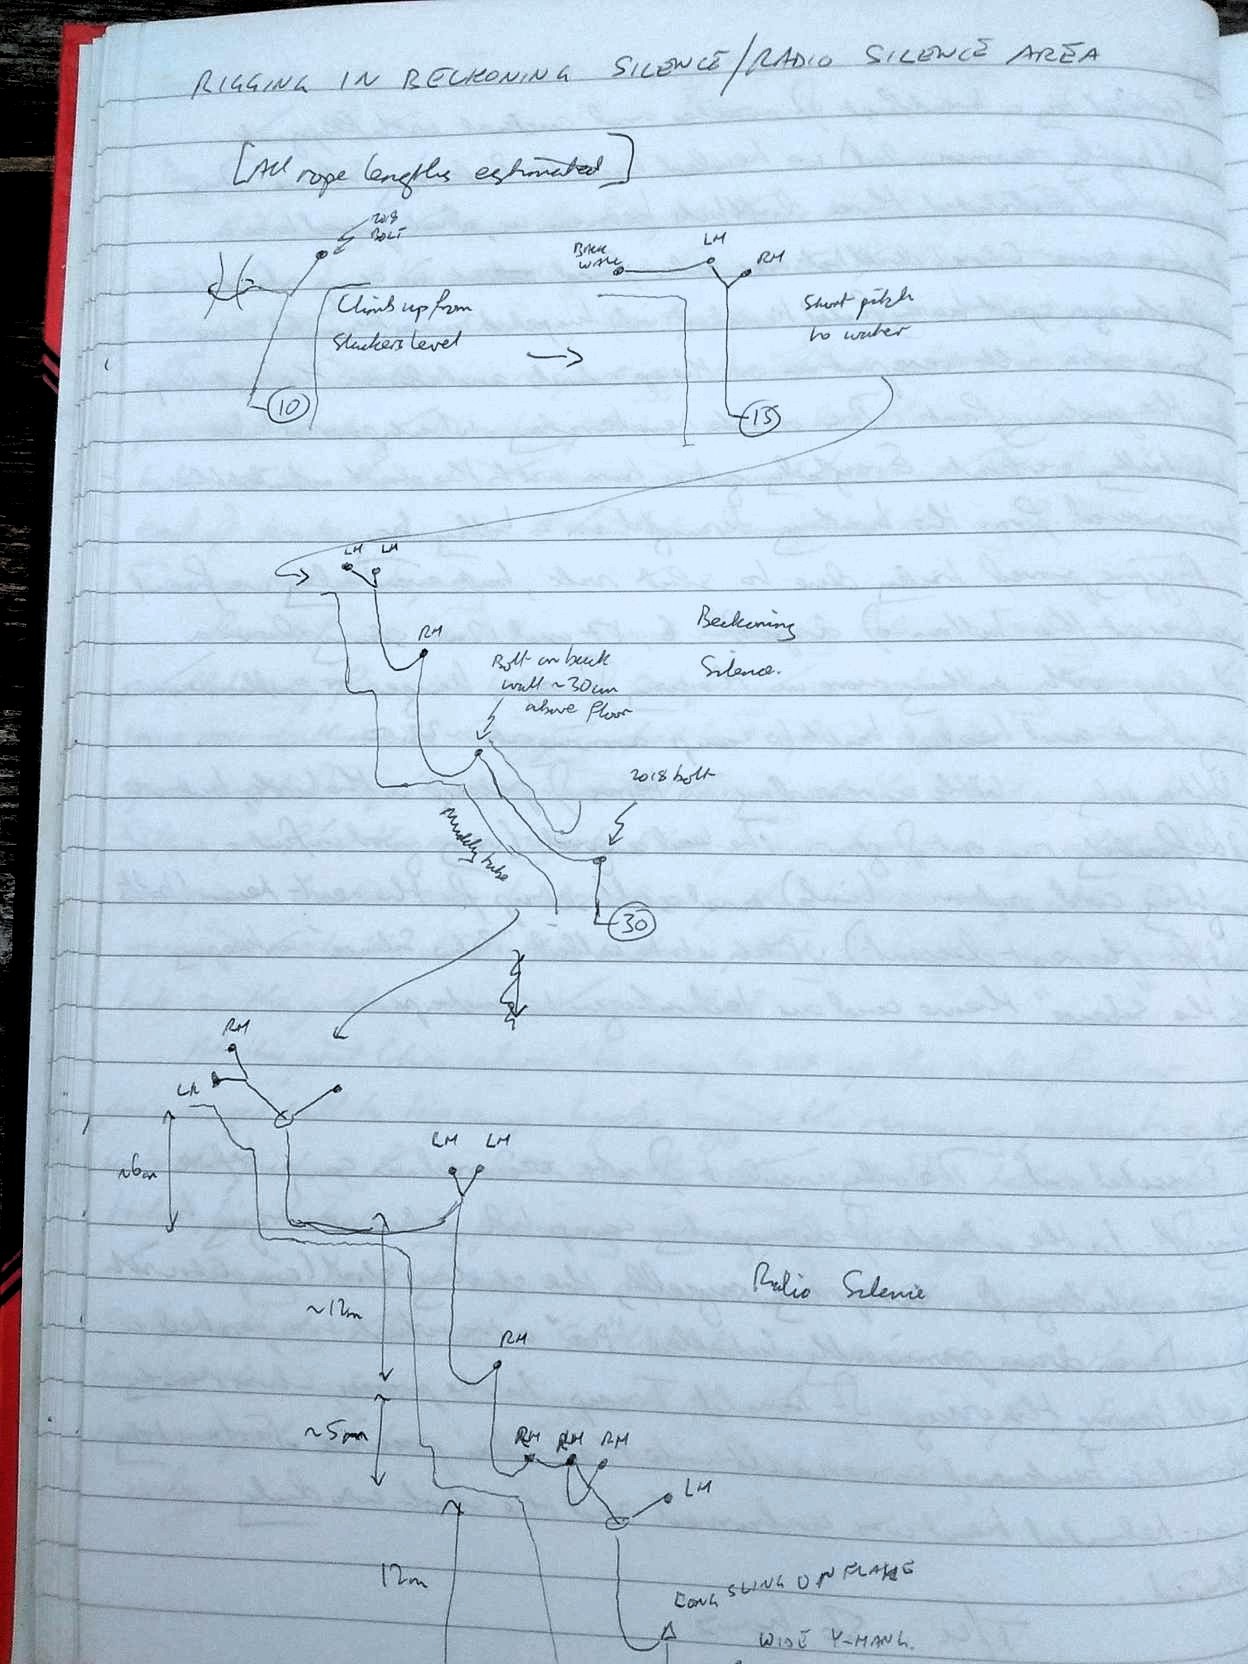 RIGGING IN BECKONING SILENCE/RADIO SILENCE AREA
[All rope lengths estimated]
2018
BOLT
Climb up from
Slackers level
10
BACK
WALL
LH
RH
Short pitch
to water
15
LH LH
RH
Bolt on back
wall ~30cm
above floor
Beckoning
Silence.
2018 bolt
Muddy tube
30
RH
LH
~6m
LH LH
~12m
Radio Silence
RH
~5m
RH RH RH
LH
12m
LONG SLING ON FLAKE
WIDE Y-HANG.